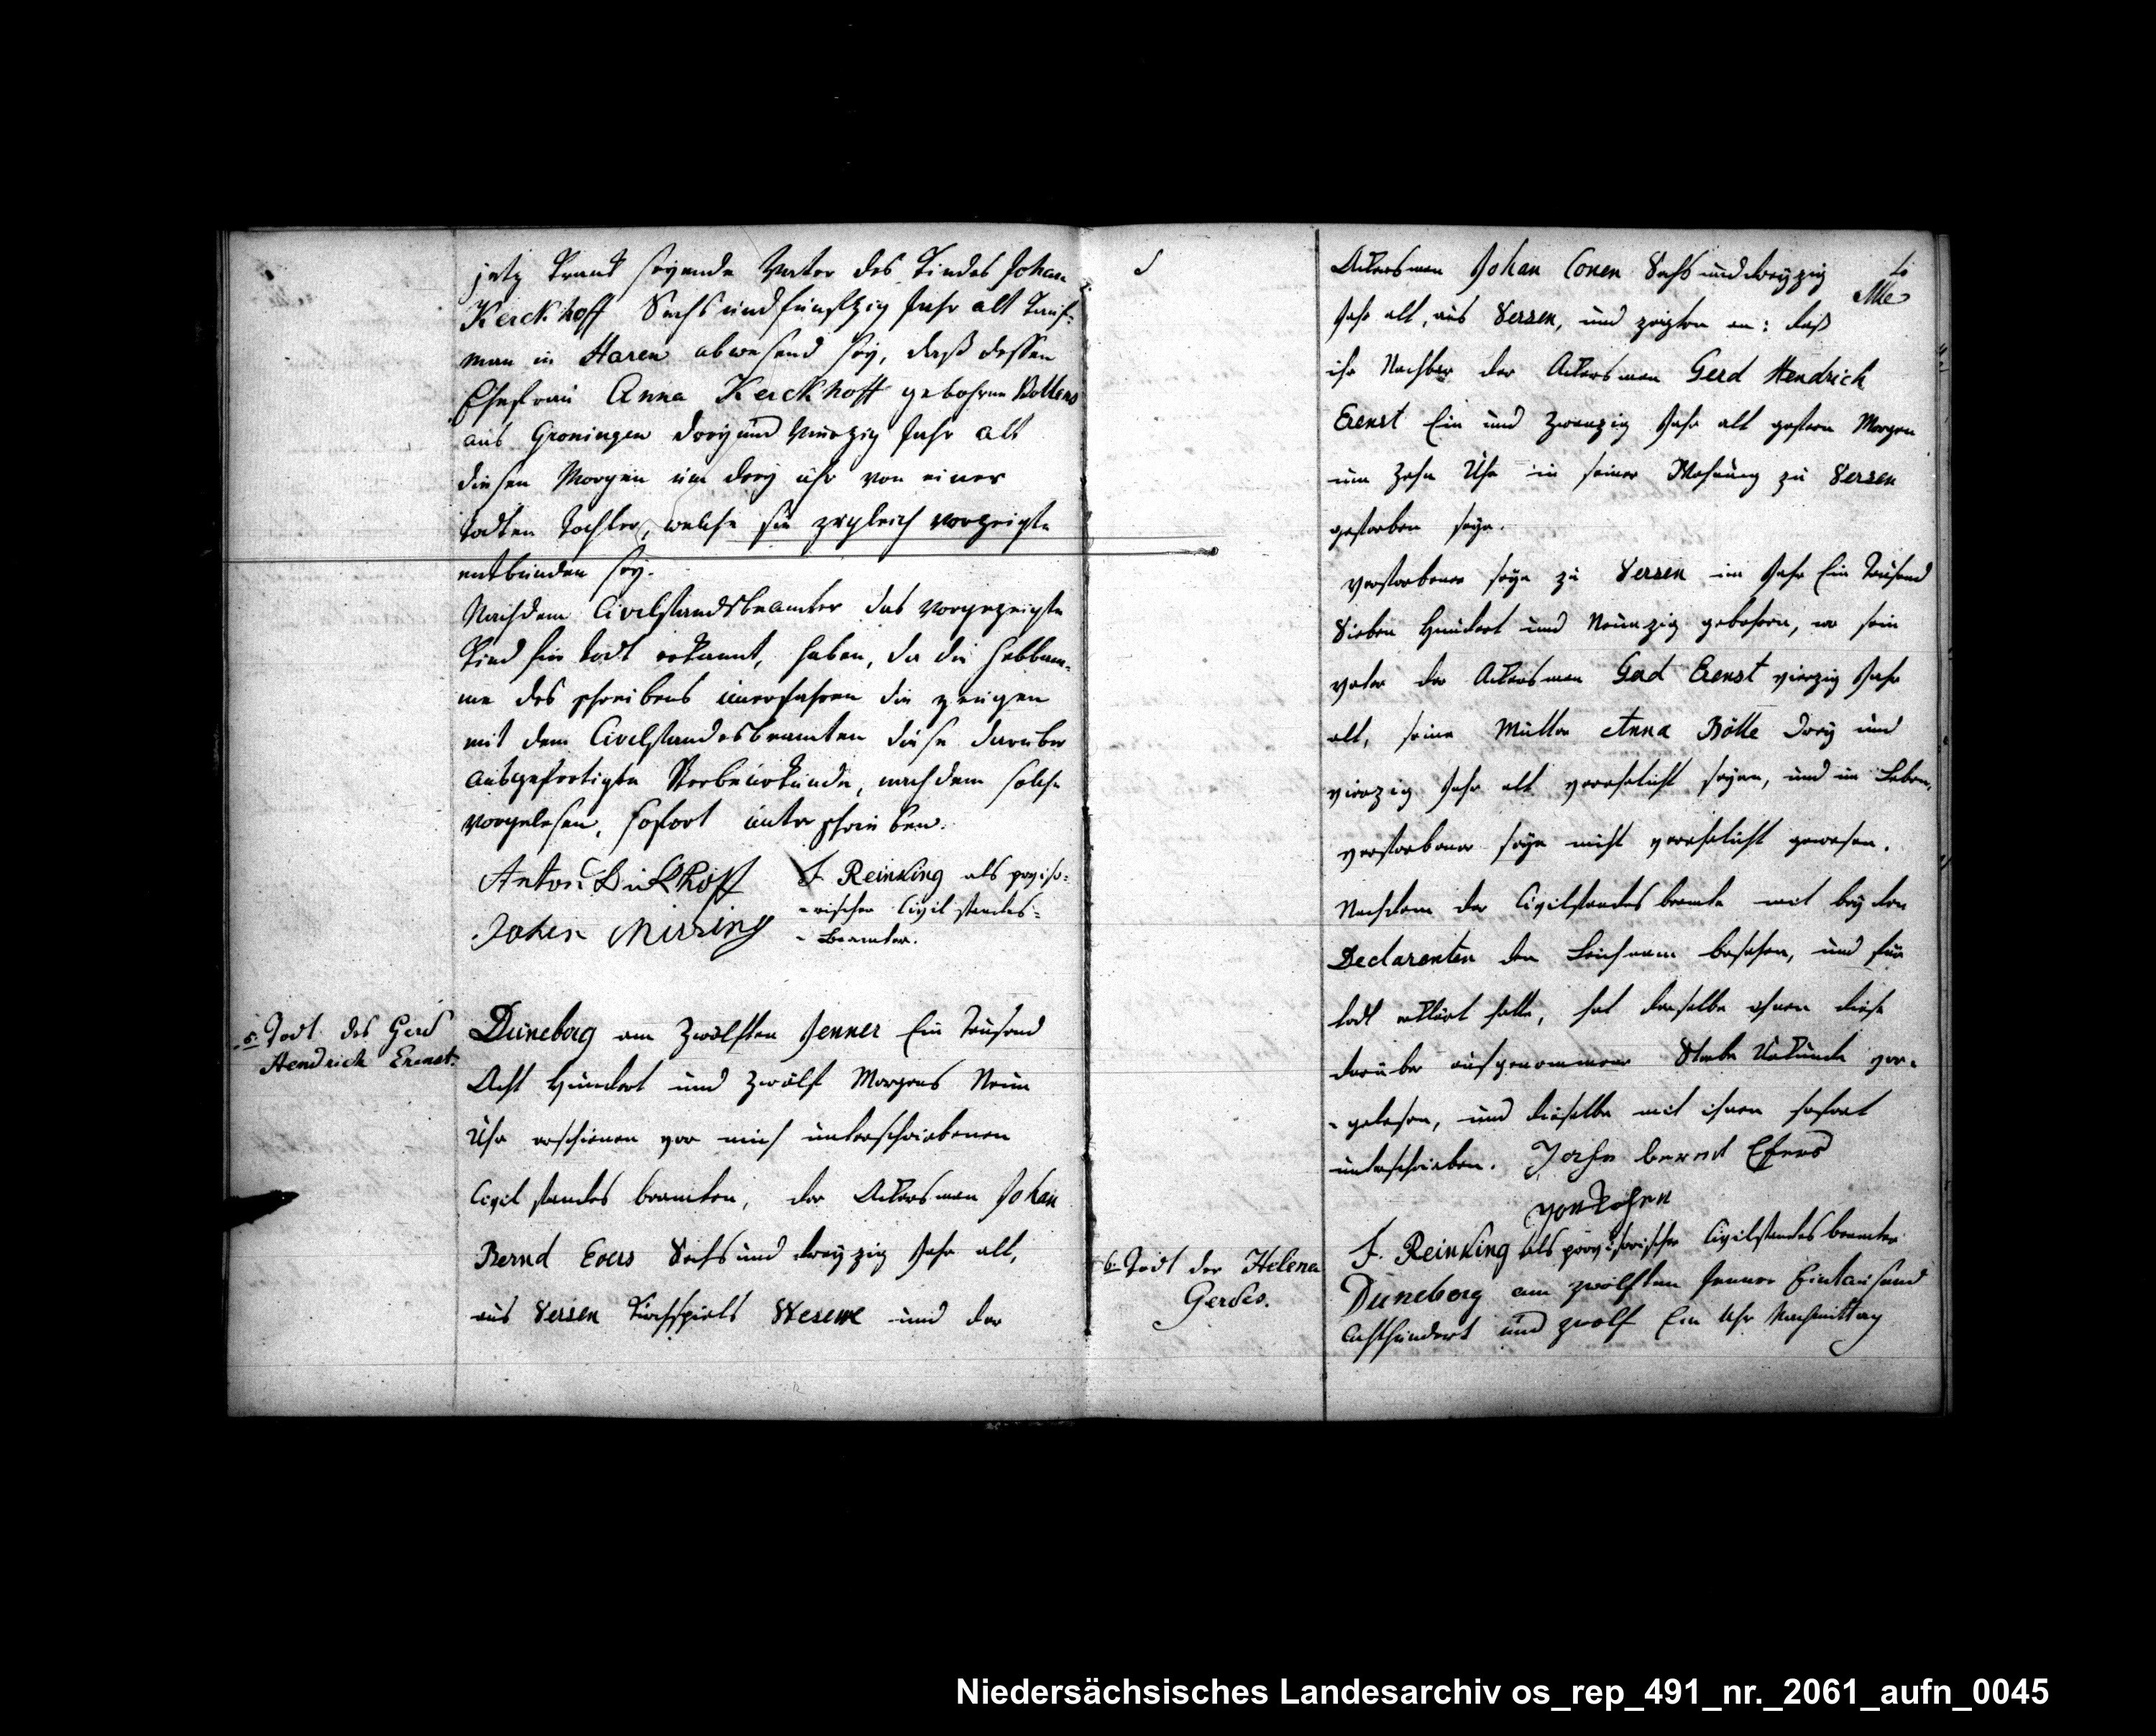 jetz krank seyende Vater des Kindes Johan
Kerckhoff Sechs und funfzig Jahr alt Kauf-
man in Haren abwesend sey, daß dessen
Ehefrau Anna Kerckhoff gebohrne Bollens
aus Groningen drey und Vierzig Jahr alt
diesen Morgen um drey uhr von einer
todten Tochter, welche sie zugleich vorzeigte
entbunden sey.
Nachdem Civilstandsbeamter das vorgezeigte
Kind für todt erkannt, haben, da die Hebbam-
me des schreibens unerfahren die zeugen
mit dem Civilstandesbeamten diese daruber
ausgefertigte Sterbeurkunde, nachdem solche
vorgelesen, sofort unterschrieben.
Anton
F. Reinking als proviso-
-rischer Civil standes-
- Beamter.
5. Todt des Gerd
Hendrich Erenst.
Düneborg am Zwölften Jenner Ein Tausend
Acht Hundert und Zwölf Morgens Neun
Uhr erschienen vor mich unterschriebenen
Civil standes beamten, der Ackersman Johan
Bernd Evers Sechs und dreyzig Jahr alt,
aus Versen Kirchspiels Wesuwe und der
Ackersman Johan Conen Sechs und dreyzig
Jahr alt, aus Versen, und zeigten an: daß
ihr Nachbar der Ackersman Gerd Hendrich
Erenst Ein und Zwanzig Jahr alt gestern Morgen
um Zehn Uhr in seiner Wohnung zu Versen
gestorben seye.
Verstorbener seye zu Versen im Jahr Ein Tausend
Sieben Hundert und Neunzig gebohren, wo sein
Vater der Ackersman Gerd Erenst vierzig Jahr
alt, seine Mutter Anna Bölle Drey und
vierzig Jahr alt verehelicht seyen, und im Leben,
verstorbener seye nicht verehelicht gewesen.
Nachdem der Civilstandes beamte mit beyden
Declarenten den Leichnam besehen, und für
todt erklärt hatte, hat derselbe ihnen diese
darüber aufgenommene Sterbe Urkunde vor-
- gelesen, und dieselbe mit ihnen sofort
unterschrieben. John bernd Efers
F. Reinking als provisorischer Civilstandes beamter
6. Todt der Helena
Gerdes.
Düneborg am zwölften Jenner Eintausend
Achthundert und zwolf Ein Uhr Nachmittag
Niedersächsisches Landesarchiv os_rep_491_nr._2061_aufn_0045